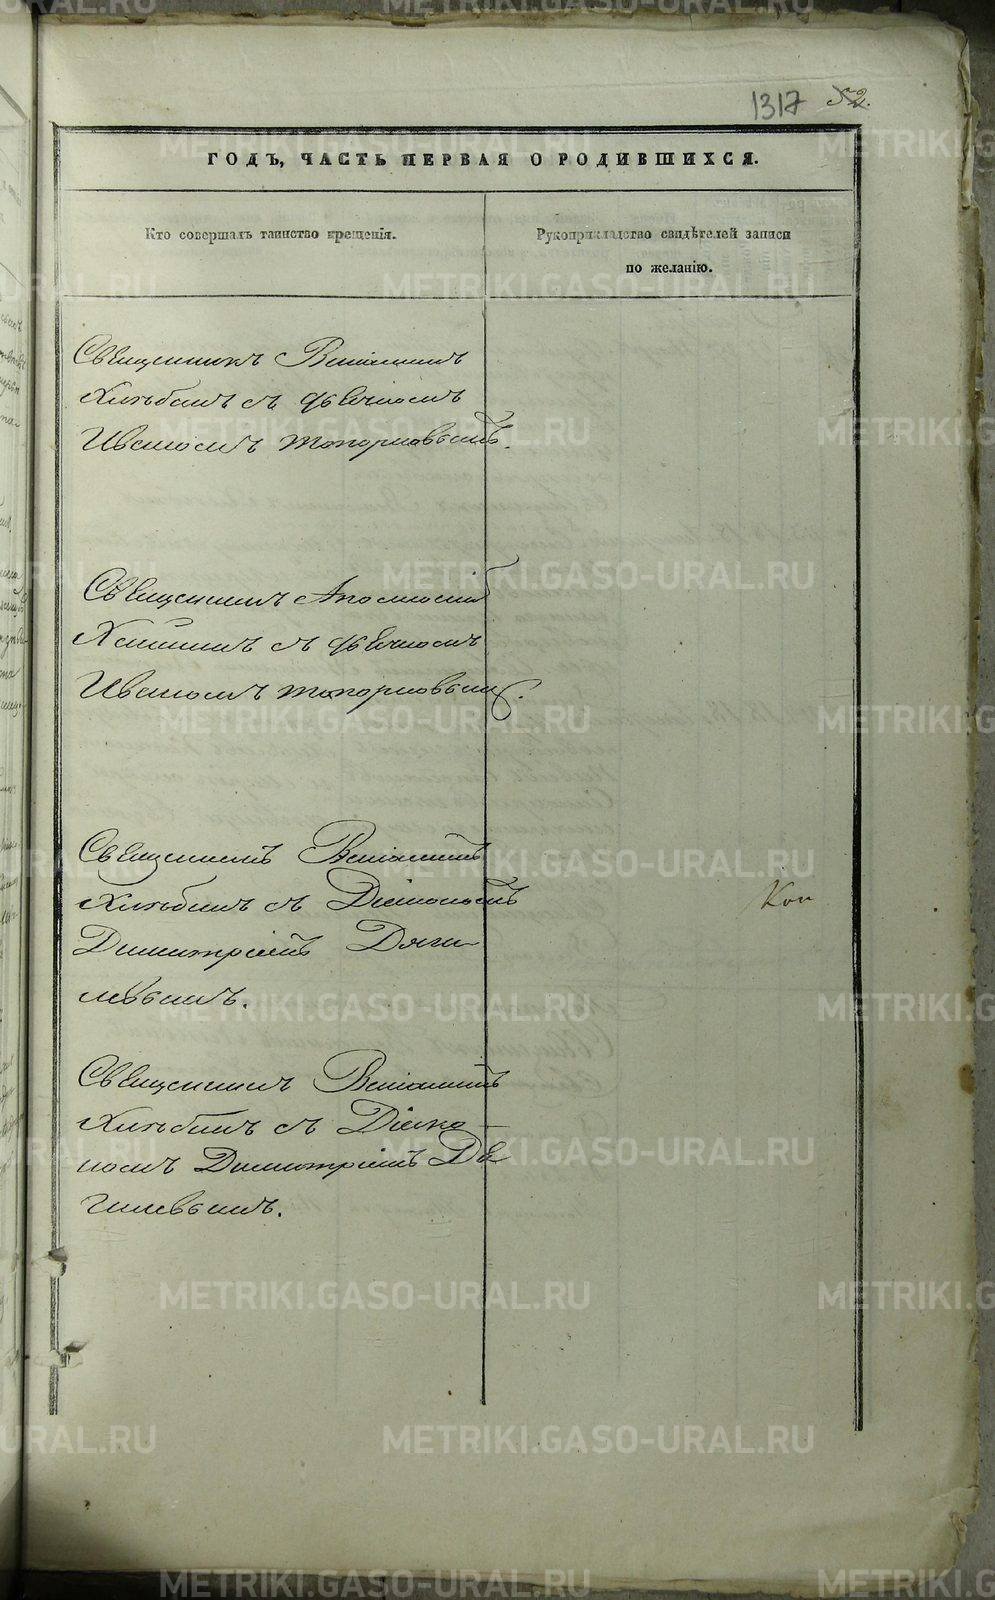 1317 52.
ГОДЪ, ЧАСТЬ ПЕРВАЯ О РОДИВШИХСЯ.
Кто совершалъ таинство крещенія.
Рукоприкладство свидѣтелей записи
по желанію.
Священникъ Веніаминъ
Хлѣбинъ съ дьячкомъ
Иваномъ Топорковымъ.
Священникъ Аполлоній
съ дьячкомъ
Иваномъ Топорковымъ.
Священникъ Веніаминъ
Хлѣбинъ съ Діакономъ
Димитріемъ Дяги-
левымъ.
Кон
Священникъ Веніаминъ
Хлѣбинъ съ Діако-
номъ Димитріемъ Дя
гилевымъ.
METRIKI.GASO-URAL.RU